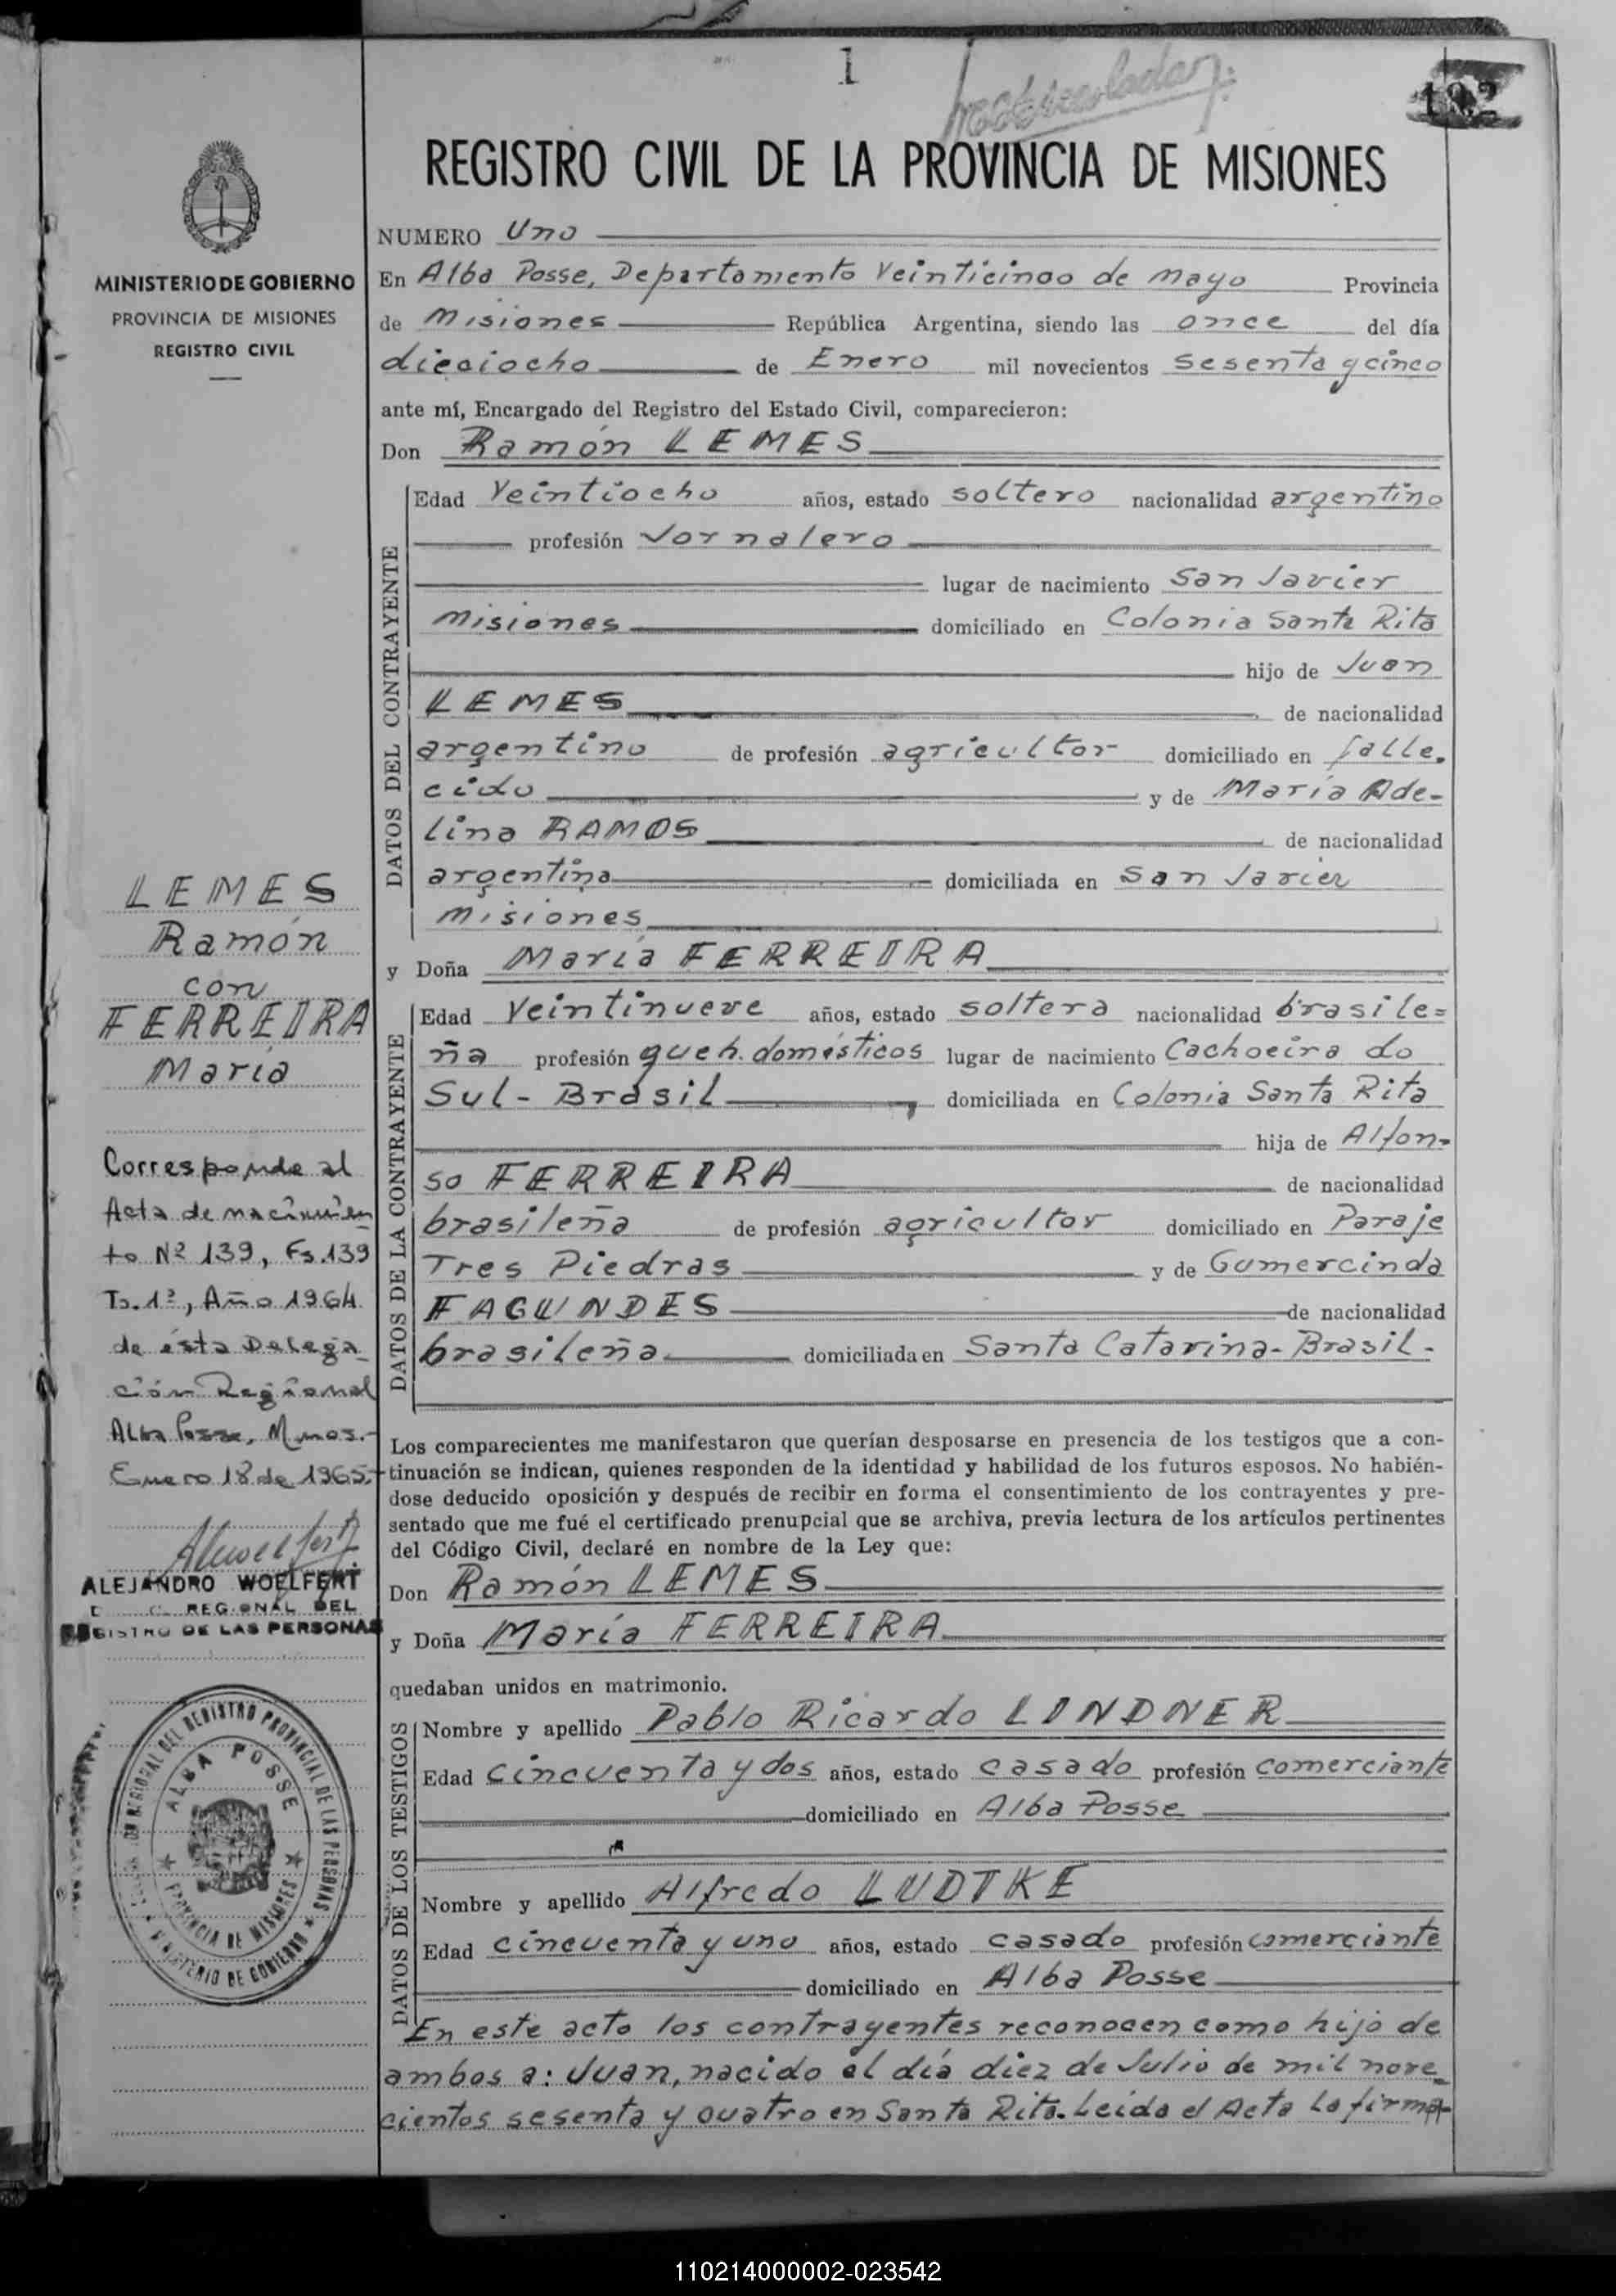 1
102
REGISTRO CIVIL DE LA PROVINCIA DE MISIONES
MINISTERIO DE GOBIERNO
PROVINCIA DE MISIONES
REGISTRO CIVIL
NUMERO Uno
En Alba Posse, Departamento Veinticinco de Mayo Provincia
de Misiones República Argentina, siendo las once del día
dieciocho de Enero mil novecientos sesenta y cinco
ante mí, Encargado del Registro del Estado Civil, comparecieron:
Don Ramón LEMES
DATOS DEL CONTRAYENTE
Edad Veintiocho años, estado soltero nacionalidad argentino
profesión Jornalero
lugar de nacimiento San Javier
Misiones domiciliado en Colonia Santa Rita
hijo de Juan
LEMES de nacionalidad
argentino de profesión agricultor domiciliado en falle-
cido y de María Ade-
lina RAMOS de nacionalidad
argentina domiciliada en San Javier
Misiones
y Doña María FERREIRA
DATOS DE LA CONTRAYENTE
Edad Veintinueve años, estado soltera nacionalidad brasile=
ña profesión queh. domésticos lugar de nacimiento Cachoeira do
Sul - Brasil domiciliada en Colonia Santa Rita
hija de Alfon-
so FERREIRA de nacionalidad
brasileña de profesión agricultor domiciliado en Paraje
Tres Piedras y de Gumercinda
FAGUNDES de nacionalidad
brasileña domiciliada en Santa Catarina - Brasil -
LEMES
Ramón
con
FERREIRA
María
Corresponde al
Acta de nacimien
to Nº 139, Fs. 139
To. 1º, Año 1964
de ésta Delega
ción Regional
Alba Posse, Mnes.-
Enero 18 de 1965.-
ALEJANDRO WOELFERT
REGIONAL DEL
REGISTRO DE LAS PERSONAS
Los comparecientes me manifestaron que querían desposarse en presencia de los testigos que a con-
tinuación se indican, quienes responden de la identidad y habilidad de los futuros esposos. No habién-
dose deducido oposición y después de recibir en forma el consentimiento de los contrayentes y pre-
sentado que me fué el certificado prenupcial que se archiva, previa lectura de los artículos pertinentes
del Código Civil, declaré en nombre de la Ley que:
Don Ramón LEMES
y Doña María FERREIRA
quedaban unidos en matrimonio.
DATOS DE LOS TESTIGOS
Nombre y apellido Pablo Ricardo LINDNER
Edad cincuenta y dos años, estado casado profesión comerciante
domiciliado en Alba Posse
Nombre y apellido Alfredo LUDTKE
Edad cincuenta y uno años, estado casado profesión comerciante
domiciliado en Alba Posse
En este acto los contrayentes reconocen como hijo de
ambos a: Juan, nacido el día diez de Julio de mil nove_
cientos sesenta y cuatro en Santa Rita. Leída el Acta la firma-
REGIONAL DEL REGISTRO PROVINCIAL DE LAS PERSONAS
ALBA POSSE
PROVINCIA DE MISIONES
MINISTERIO DE GOBIERNO
110214000002-023542